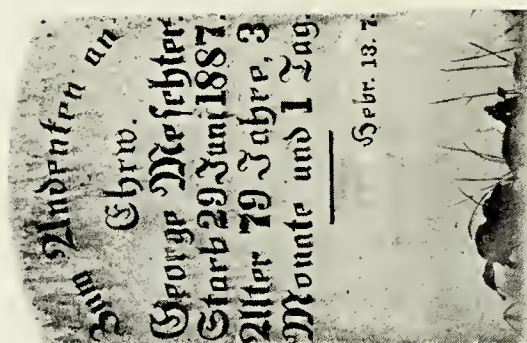 Zum Andenken an
Ehrw.
George Meschter.
Starb 29 Juni 1887.
Alter 79 Jahre, 3
Monate und 1 Tag.
Hebr. 13. 7.